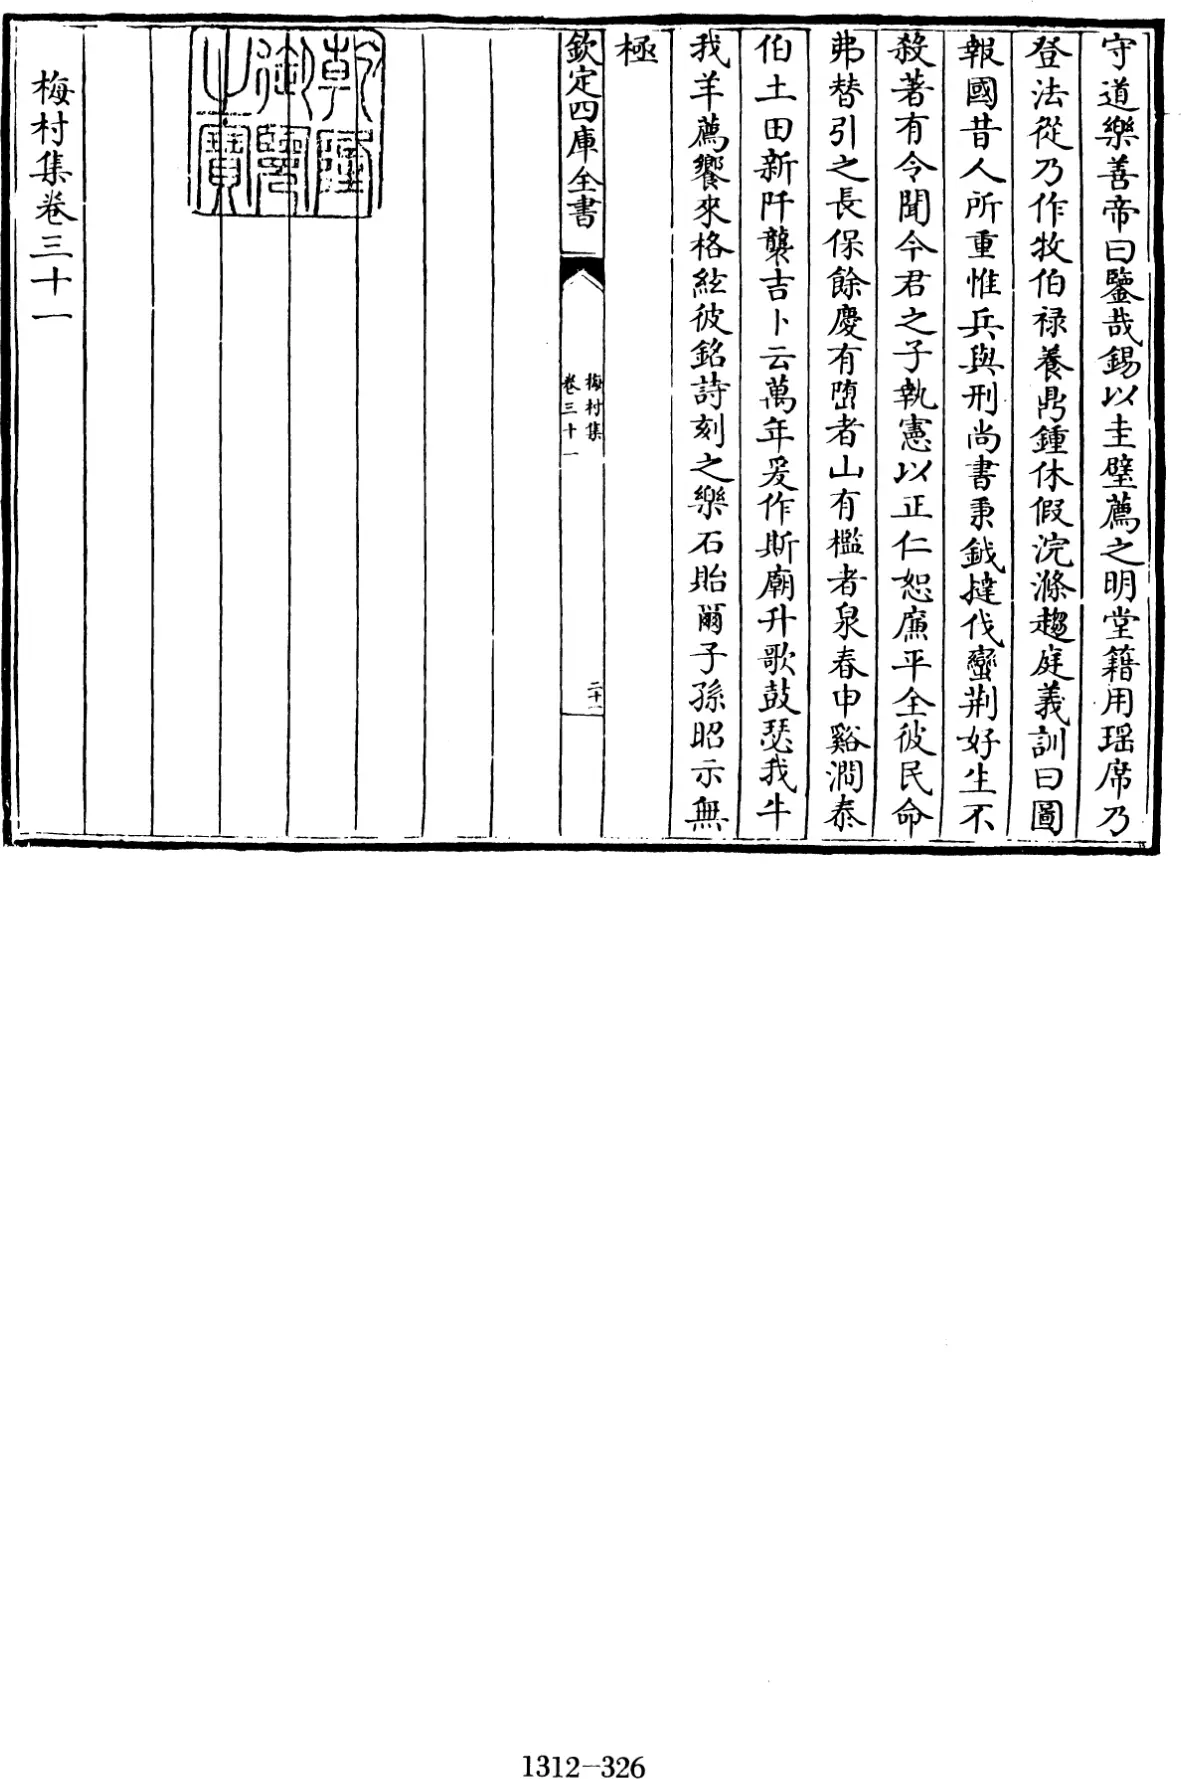 守道樂善帝曰鑒哉錫以圭璧薦之明堂籍用瑶席乃
登法從乃作牧伯禄養鼎鍾休假浣滌趨庭義訓曰圖
報國昔人所重惟兵與刑尚書秉鉞撻伐蠻荆好生不
殺著有令聞今君之子執憲以正仁恕廉平全彼民命
弗替引之長保餘慶有墮者山有檻者泉春申谿澗泰
伯土田新阡襲吉卜云萬年爰作斯廟升歌鼓瑟我牛
我羊薦饗來格紘彼銘詩刻之樂石貽爾子孫昭示無
極
欽定四庫全書
梅村集
卷三十一
二十一
乾隆御覽之寶
梅村集卷三十一
1312-326